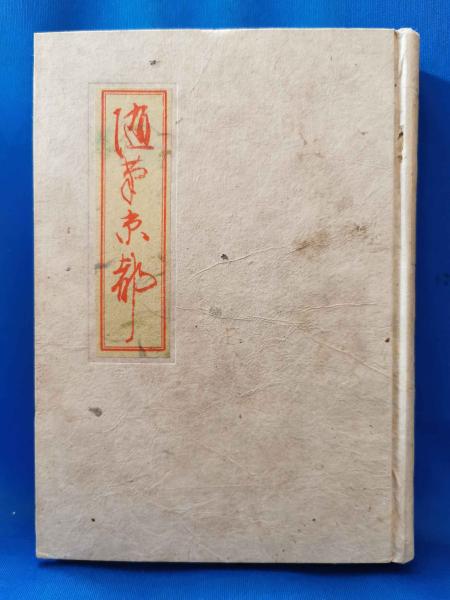 随筆京都